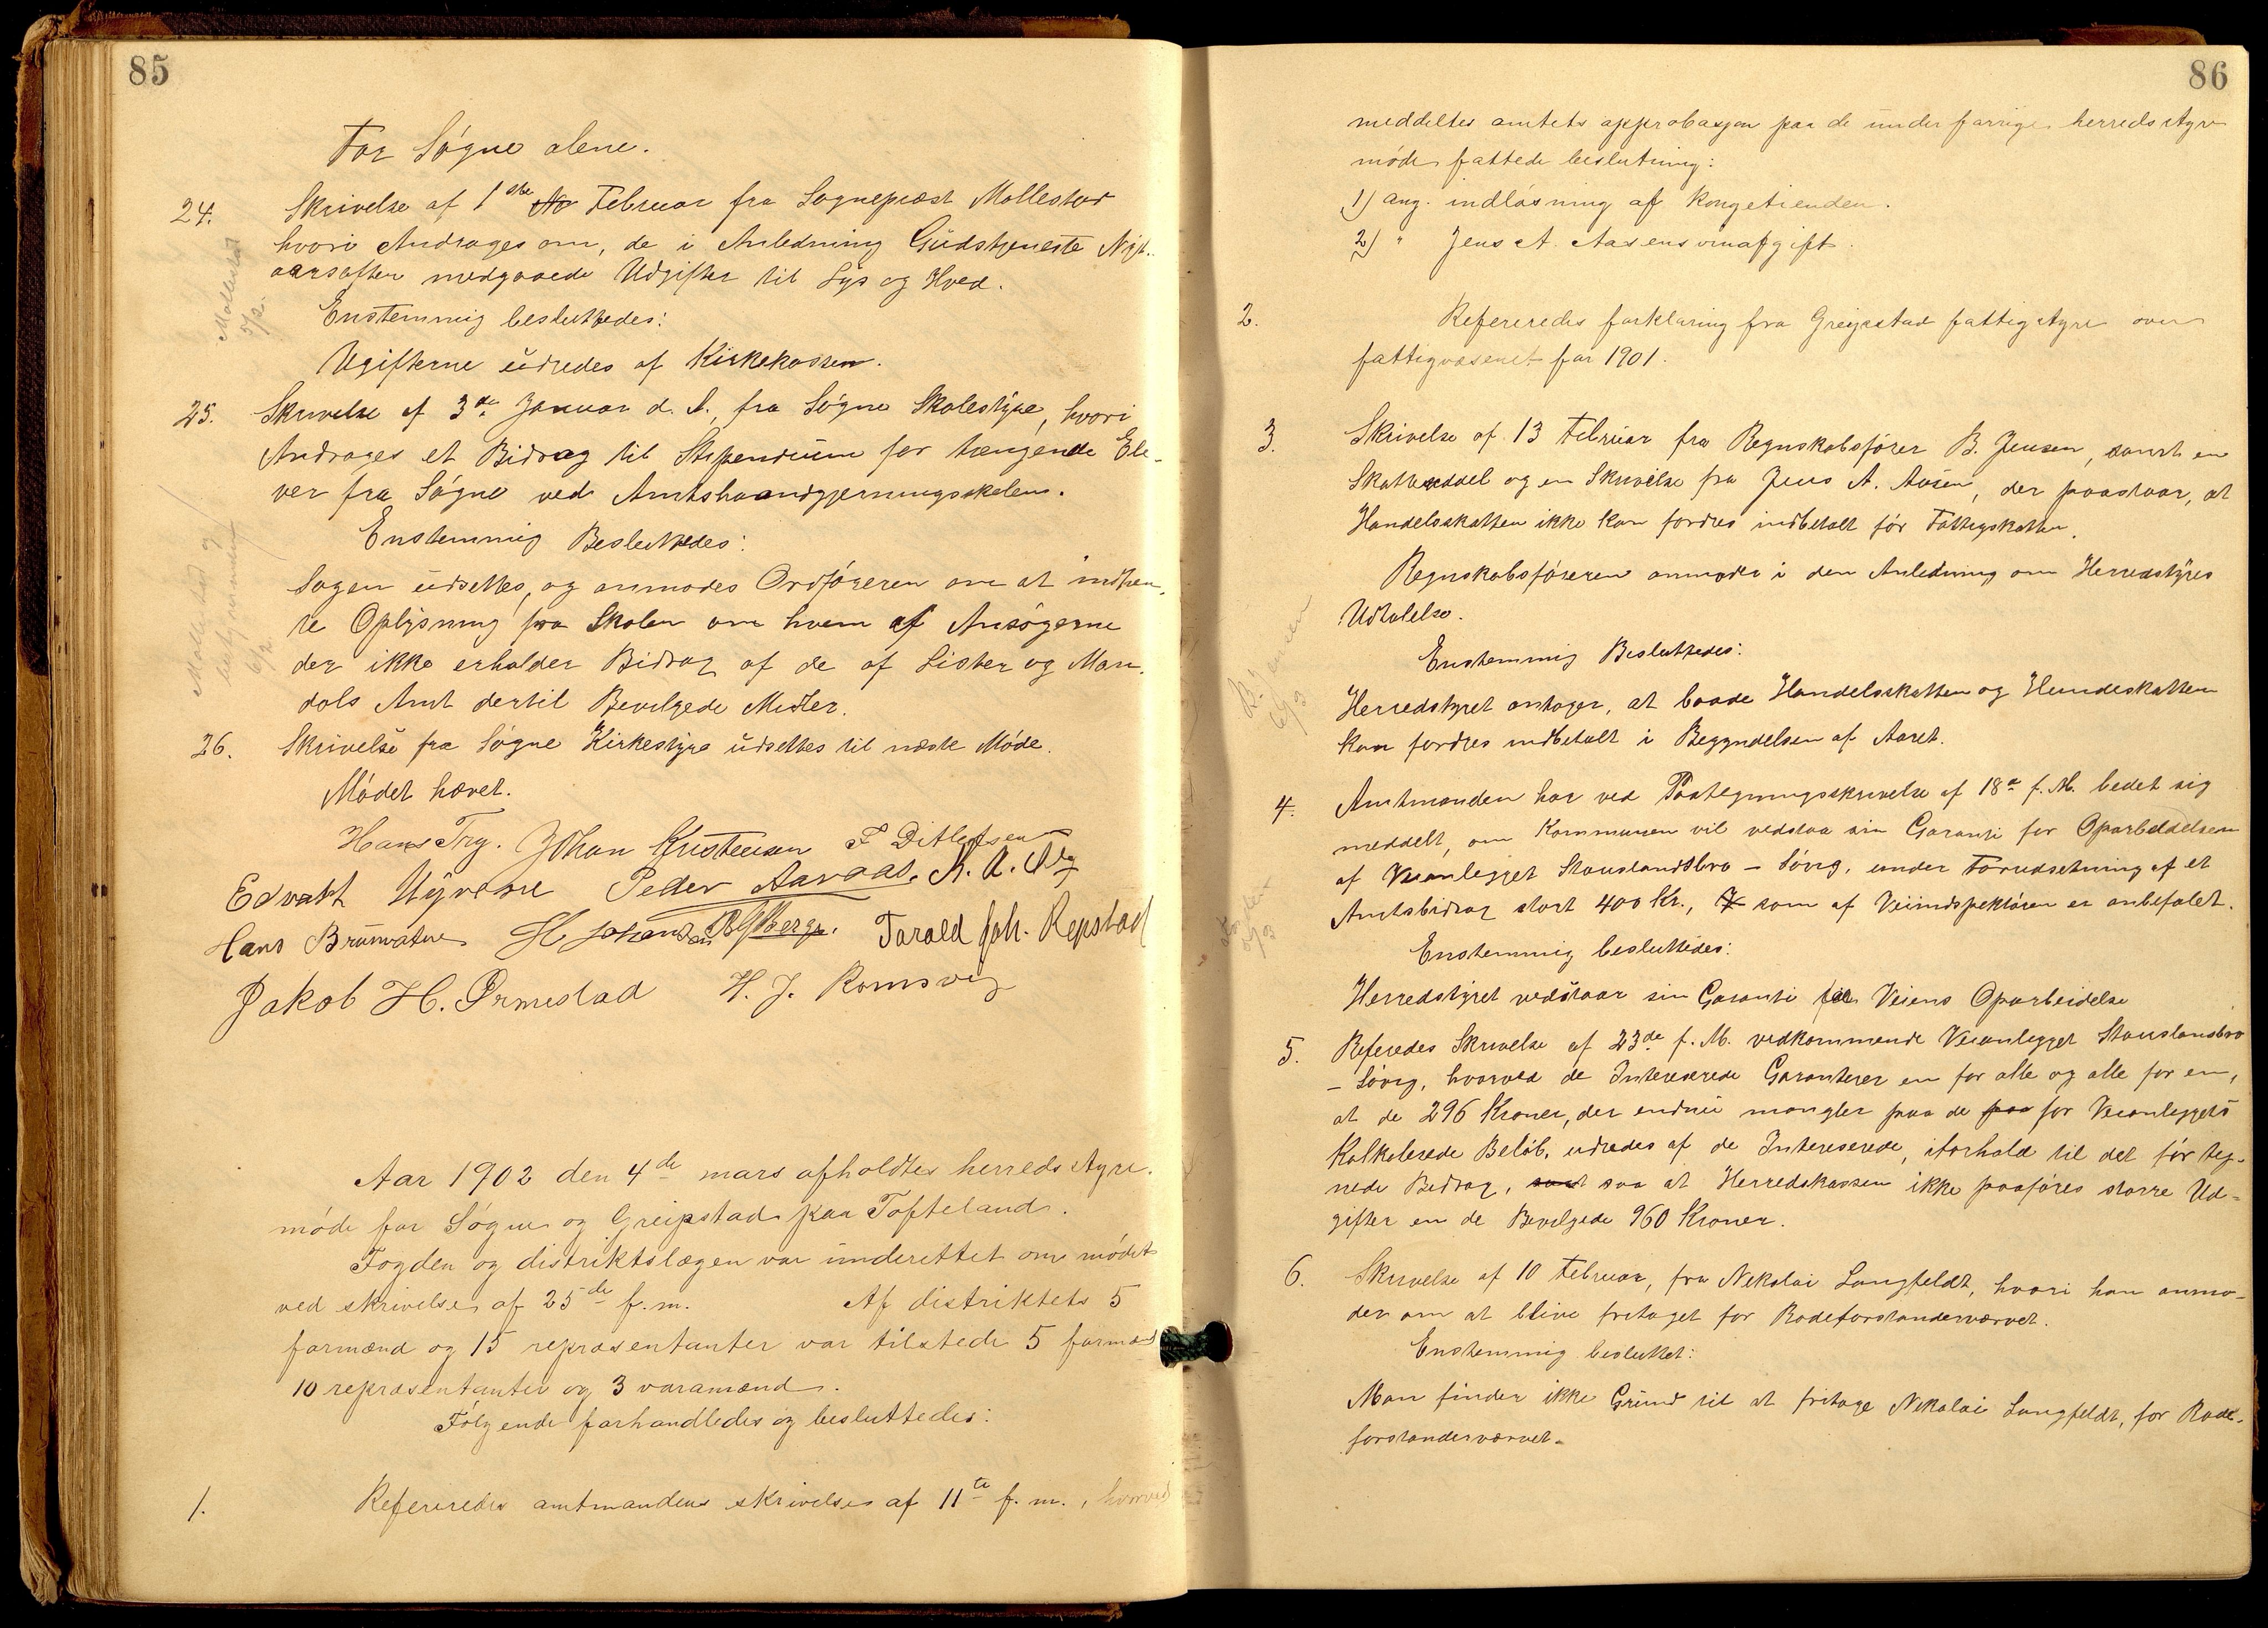 85
For Søgne alene.
24. Skrivelse af 1ste Februar fra Sogneprest Mollestad
hvori Andrages om, de i Anledning Gudstjeneste Nyt-
aarsaften medgaaede Udgifter til Lys og Hved.
Enstemmig besluttedes:
Ugifterne udredes af Kirkekassen.
Mollestad
5/2.
25. Skrivelse af 3de Januar d. A. fra Søgne Skolestyre, hvori
Andrages et Bidrag til Stipendium for trengende Ele-
ver fra Søgne ved Amtshaandgjerningsskolen.
Enstemmig Besluttedes:
Sagen udsettes, og anmodes Ordføreren om at indhen-
te Oplysning fra Skolen om hvem af Ansøgerne
der ikke erholder Bidrag af de af Lister og Man-
dals Amt dertil Bevilgede Midler.
Mollestad og
6/2
26. Skrivelse fra Søgne Kirkestyre udsettes til næste Møde.
Mødet hævet.
Hans Try. Johan Kristensen F Ditlefsen
Edvart Uyvene Peder Aaraas. K. A.
Hans Brunvatne H Johansen Berge. Tarald Joh. Repstad
Jakob H. Ormestad H. J. Romsvig
Aar 1902 den 4de mars afholdtes herredsstyre-
møde for Søgne og Greipstad paa Tofteland.
Fogden og distriktslægen var underettet om mødet
ved skrivelse af 25de f. m. Af distriktets 5
formænd og 15 repræsentanter var tilstede 5 formænd
10 repræsentanter og 3 varamænd.
Følgende forhandledes og besluttedes:
1. Refereredes amtmandens skrivelse af 11te f. m., hvorved
86
meddeltes amtets approbasjon paa de under forrige herredsstyre
møde fattede beslutning:
1) ang. indløsning af kongetienden.
2) " Jens A. Aasens vinafgift.
2. Refereredes forklaring fra Greipstad fattigstyre over
fattigvæsenet for 1901.
3. Skrivelse af 13 Februar fra Regnskabsfører B. Jensen, samt en
Skatteseddel og en Skrivelse fra Jens A. Aasen, der paastaar, at
Handelsskatten ikke kan fordres indbetalt før Fattigskatten.
Regnskabsføreren anmoder i den Anledning om Herredstyres
Udtalelse.
Enstemmig Besluttedes:
Herredstyret antager, at baade Handelsskatten og Hundeskatten
kan fordres indbetalt i Begyndelsen af Aaret.
B. Jensen
6/3
4. Amtmanden har ved Paategningsskrivelse af 18de f. M. bedet sig
meddelt, om Kommunen vil vedstaa sin Garanti for Oparbeidelsen
af Veianlegget Stauslandsbro – Søvig, under Forudsetning af et
Amtsbidrag stort 400 Kr., som af Veiindspektøren er anbefalet.
Enstemmig besluttedes:
Herredstyret vedstaar sin Garanti for Veiens Oparbeidelse
5. Referedes Skrivelse af 23de f. M. vedkommende Veianlegget Stauslansbro
– Søvig, hvorved de Intereserede Garanterer en for alle og alle for en,
at de 296 Kroner, der endnu mangler paa de paa for Veianleggets
Kalkulerede Beløb, udredes af de Intereserede, iforhold til det før teg-
nede Bidrag, samt saa at Herredskassen ikke paaføres større Ud-
gifter en de Bevilgede 960 Kroner.
6. Skrivelse af 10 Februar, fra Nikolai Langfeldt, hvori han anmo-
der om at blive fritaget for Rodeforstandervervet.
Enstemmig besluttet:
Man finder ikke Grund til at fritage Nikolai Langfeldt, for Rode-
forstandervervet.